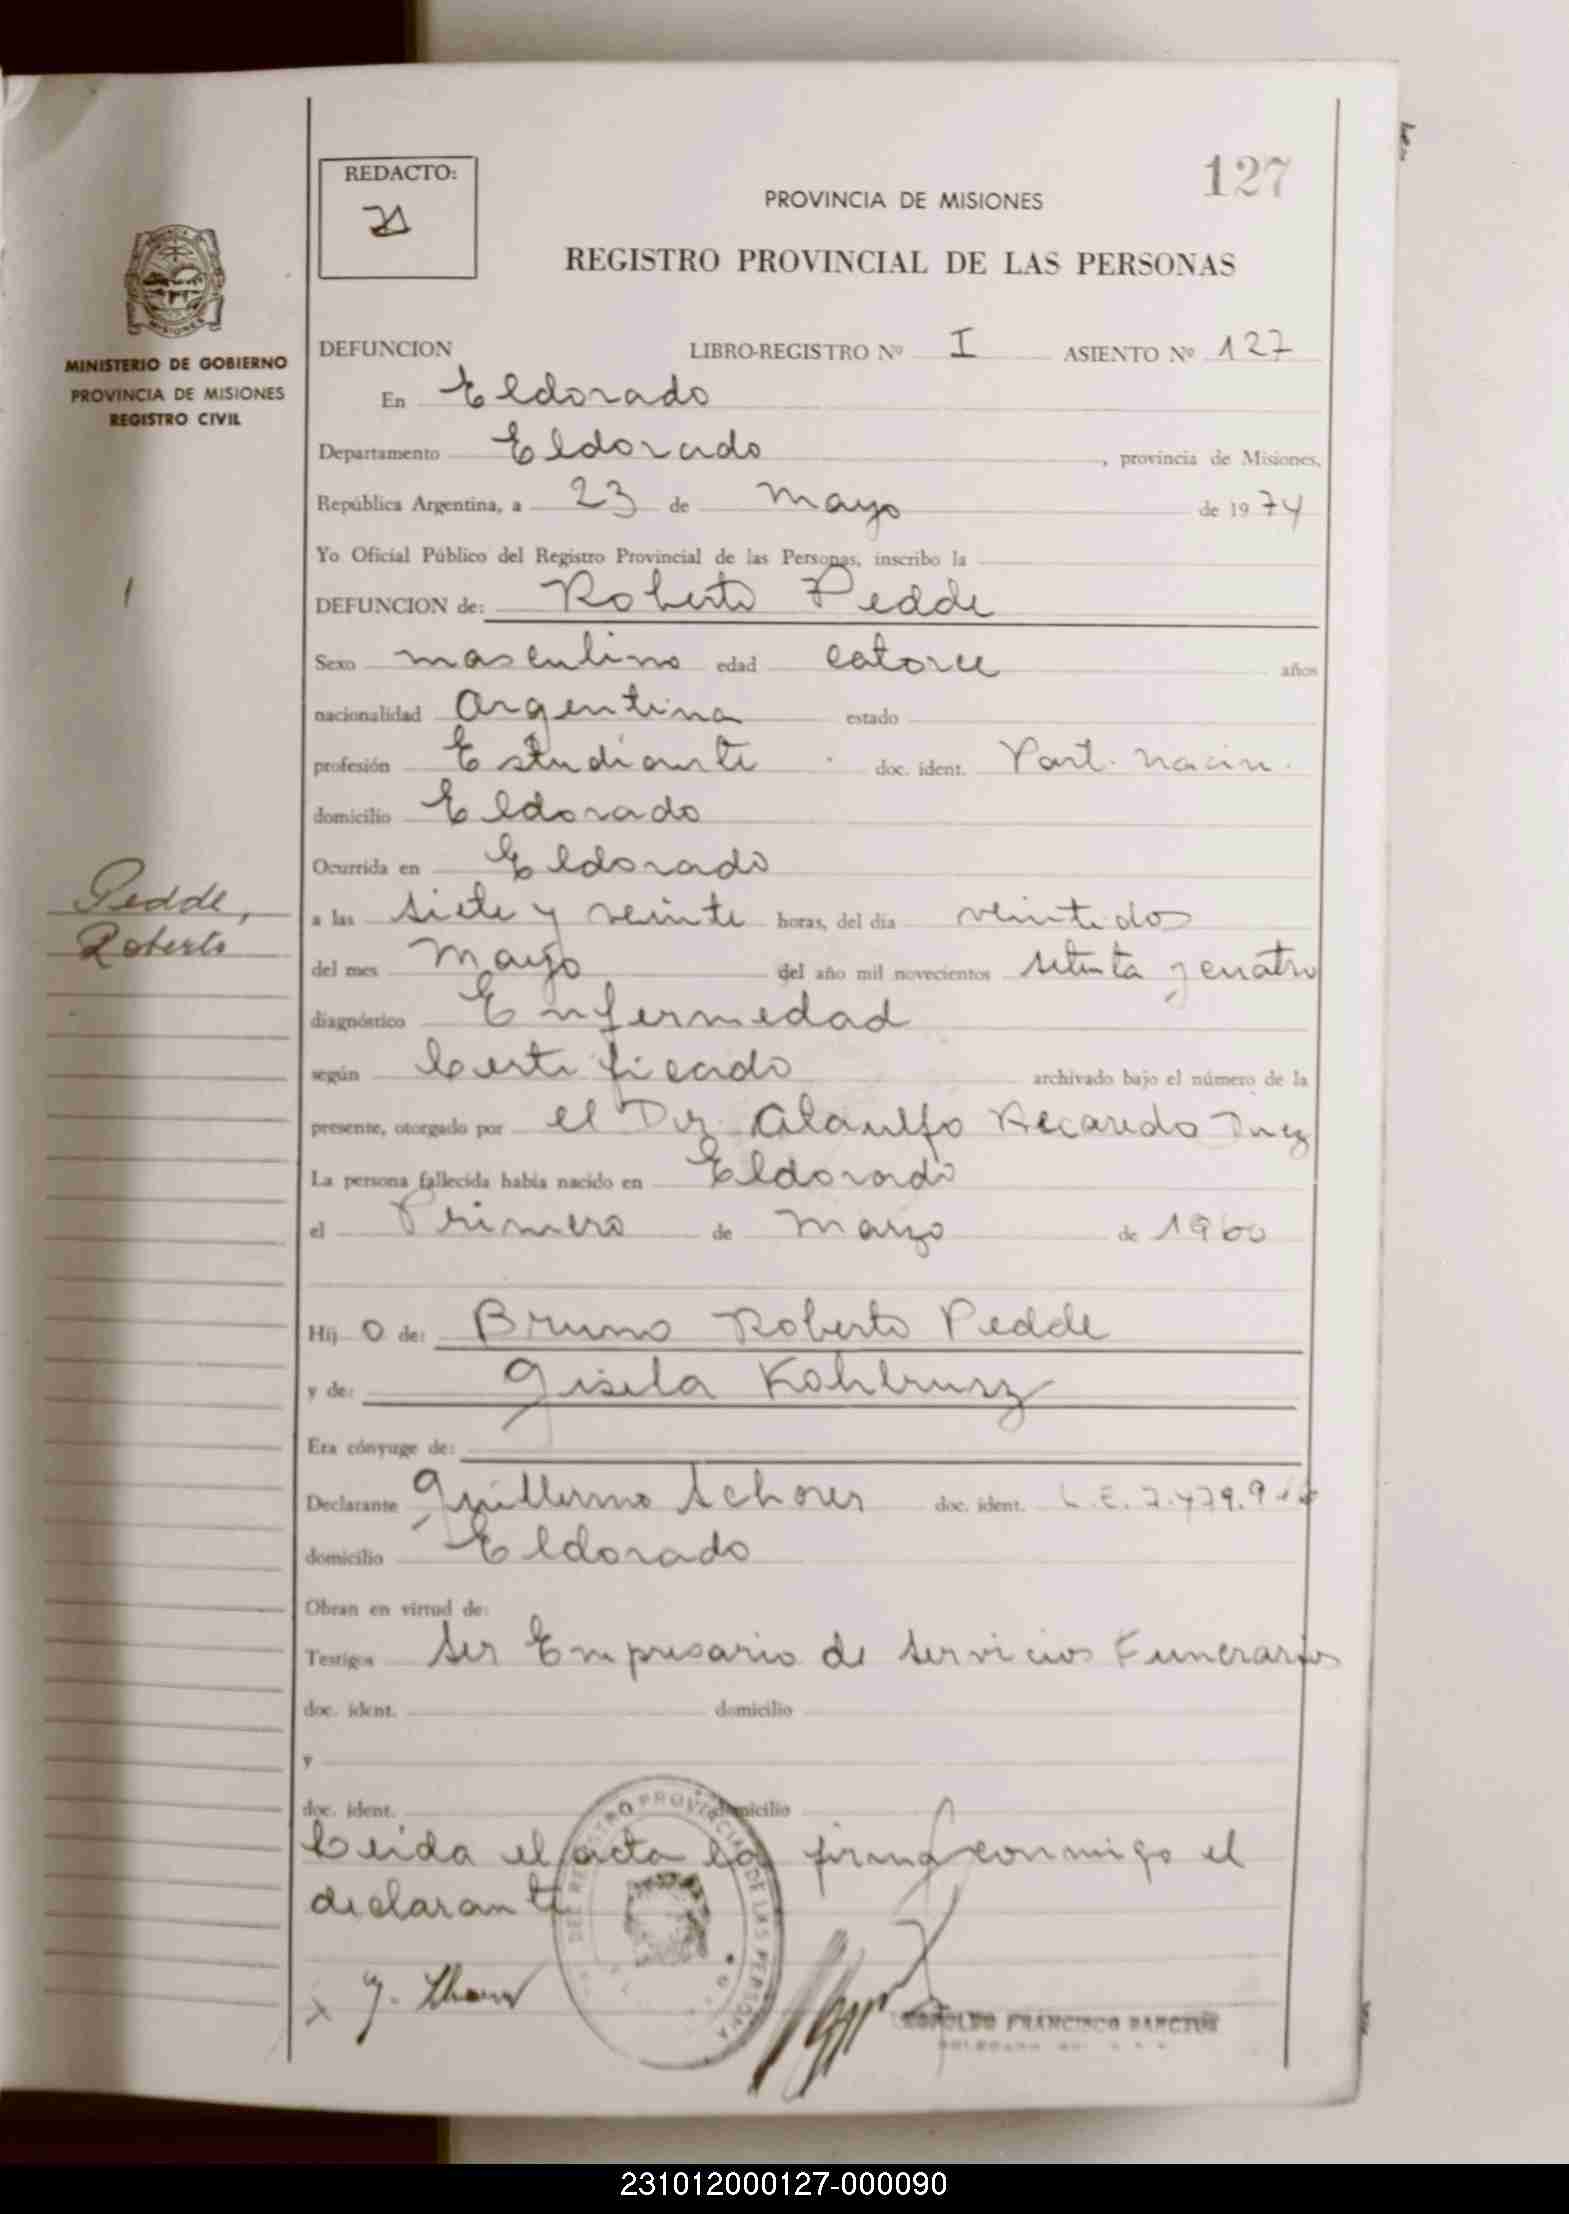 127
REDACTO:
PROVINCIA DE MISIONES
REGISTRO PROVINCIAL DE LAS PERSONAS
MISIONES
MINISTERIO DE GOBIERNO
PROVINCIA DE MISIONES
REGISTRO CIVIL
DEFUNCION LIBRO-REGISTRO Nº I ASIENTO Nº 127
En Eldorado
Departamento Eldorado, provincia de Misiones,
República Argentina, a 23 de mayo de 1974
Yo Oficial Público del Registro Provincial de las Personas, inscribo la
DEFUNCION de: Roberto Pedde
Sexo masculino edad catorce años
nacionalidad argentina estado
profesión Estudiante doc. ident. Part. nacim.
domicilio Eldorado
Ocurrida en Eldorado
Pedde,
Roberto
a las siete y veinte horas, del día veintidos
del mes mayo del año mil novecientos setenta y cuatro
diagnóstico Enfermedad
según Certificado archivado bajo el número de la
presente, otorgado por el Dr. Recaredo
La persona fallecida había nacido en Eldorado
el Primero de marzo de 1960
Hij o de: Bruno Roberto Pedde
y de: Gisela
Era cónyuge de:
Declarante Guillermo doc. ident. L.E. 7.479.9
domicilio Eldorado
Obran en virtud de:
Testigos ser Empresario de servicios Funerarios
doc. ident. domicilio
y
doc. ident. domicilio
Leida el acta la firma conmigo el
declarante
DEL REGISTRO PROVINCIAL DE LAS PERSONAS
LEOPOLDO FRANCISCO
231012000127-000090